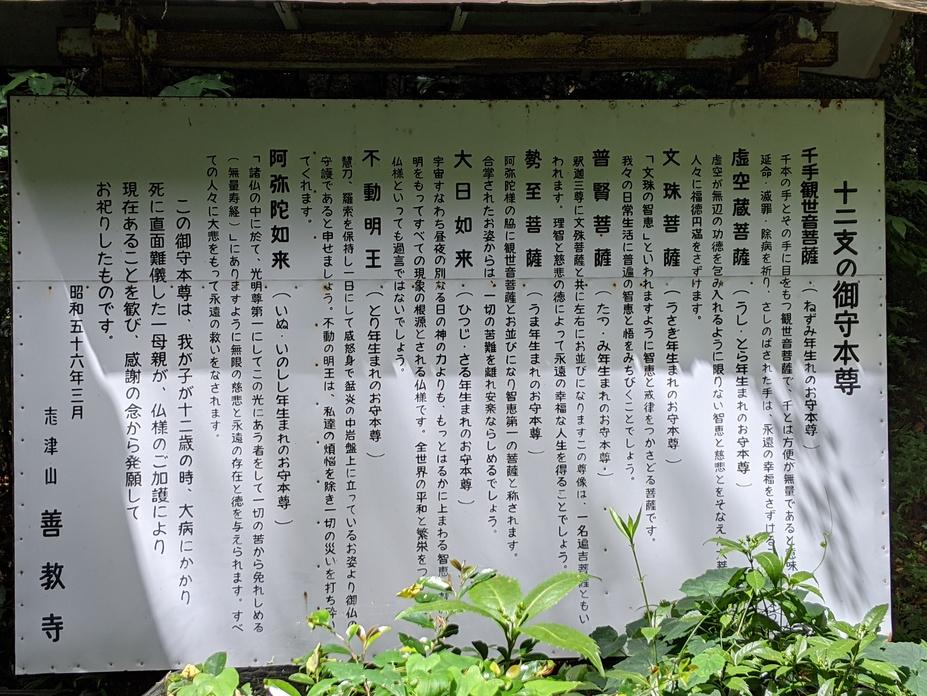 十二支の御守本尊
千手観世音菩薩(ねずみ年生れのお守本尊)
千本の手とその手に目をもつ観世音菩薩で、千とは方便が無量であると意味
延命・滅罪・除病を祈り、さしのばされた手は、永遠の幸福をさずける
虚空蔵菩薩(うし・とら年生まれのお守本尊)
虚空が無辺の功徳を包み入れるように限りない智恵と慈悲とをそなえ
人々に福徳円満をさずけます。
文珠菩薩(うさぎ年生まれのお守本尊)
「文珠の智恵」といわれますように智恵と戒律をつかさどる菩薩です。
我々の日常生活に普遍の智恵と悟をみちびくことでしょう。
普賢菩薩(たつ・み年生まれのお守本尊・)
釈迦三尊に文殊菩薩と共に左右にお並びになりますこの尊像は、一名遍吉菩薩ともい
われます。理智と慈悲の徳によって永遠の幸福な人生を得ることでしょう。
勢至菩薩(うま年生まれのお守本尊)
阿弥陀様の脇に観世音菩薩とお並びになり智恵第一の菩薩と称されます。
合掌されたお姿からは、一切の苦難を離れ安楽ならしめるでしょう。
大日如来(ひつじ・さる年生まれのお守本尊)
宇宙すなわち昼夜の別なる日の神の力よりも、もっとはるかに上まわる智恵
明をもってすべての現象の根源とされる仏様です。全世界の平和と繁栄をつ
仏様といっても過言ではないでしょう。
不動明王(とり年生まれのお守本尊)
慧刀、羅索を保持し一日にして感怒身で盆炎の中岩盤上に立っているお姿より御仏の
守護であると申せましょう。不動の明王は、私達の煩悩を除き一切の災いを打ち砕
てくれます。
阿弥陀如来(いぬ・いのしし年生まれのお守本尊)
「諸仏の中に於て、光明尊第一にしてこの光にあう者をして一切の苦から免れしめる
(無量寿経)」にありますように無限の慈悲と永遠の存在と徳を与えられます。すべ
ての人々に大悲をもって永遠の救いをなされます。
この御守本尊は、我が子が十二歳の時、大病にかかり
死に直面難儀した一母親が、仏様のご加護により
現在あることを歓び、感謝の念から発願して
お祀りしたものです。
昭和五十六年三月
志津山 善教寺